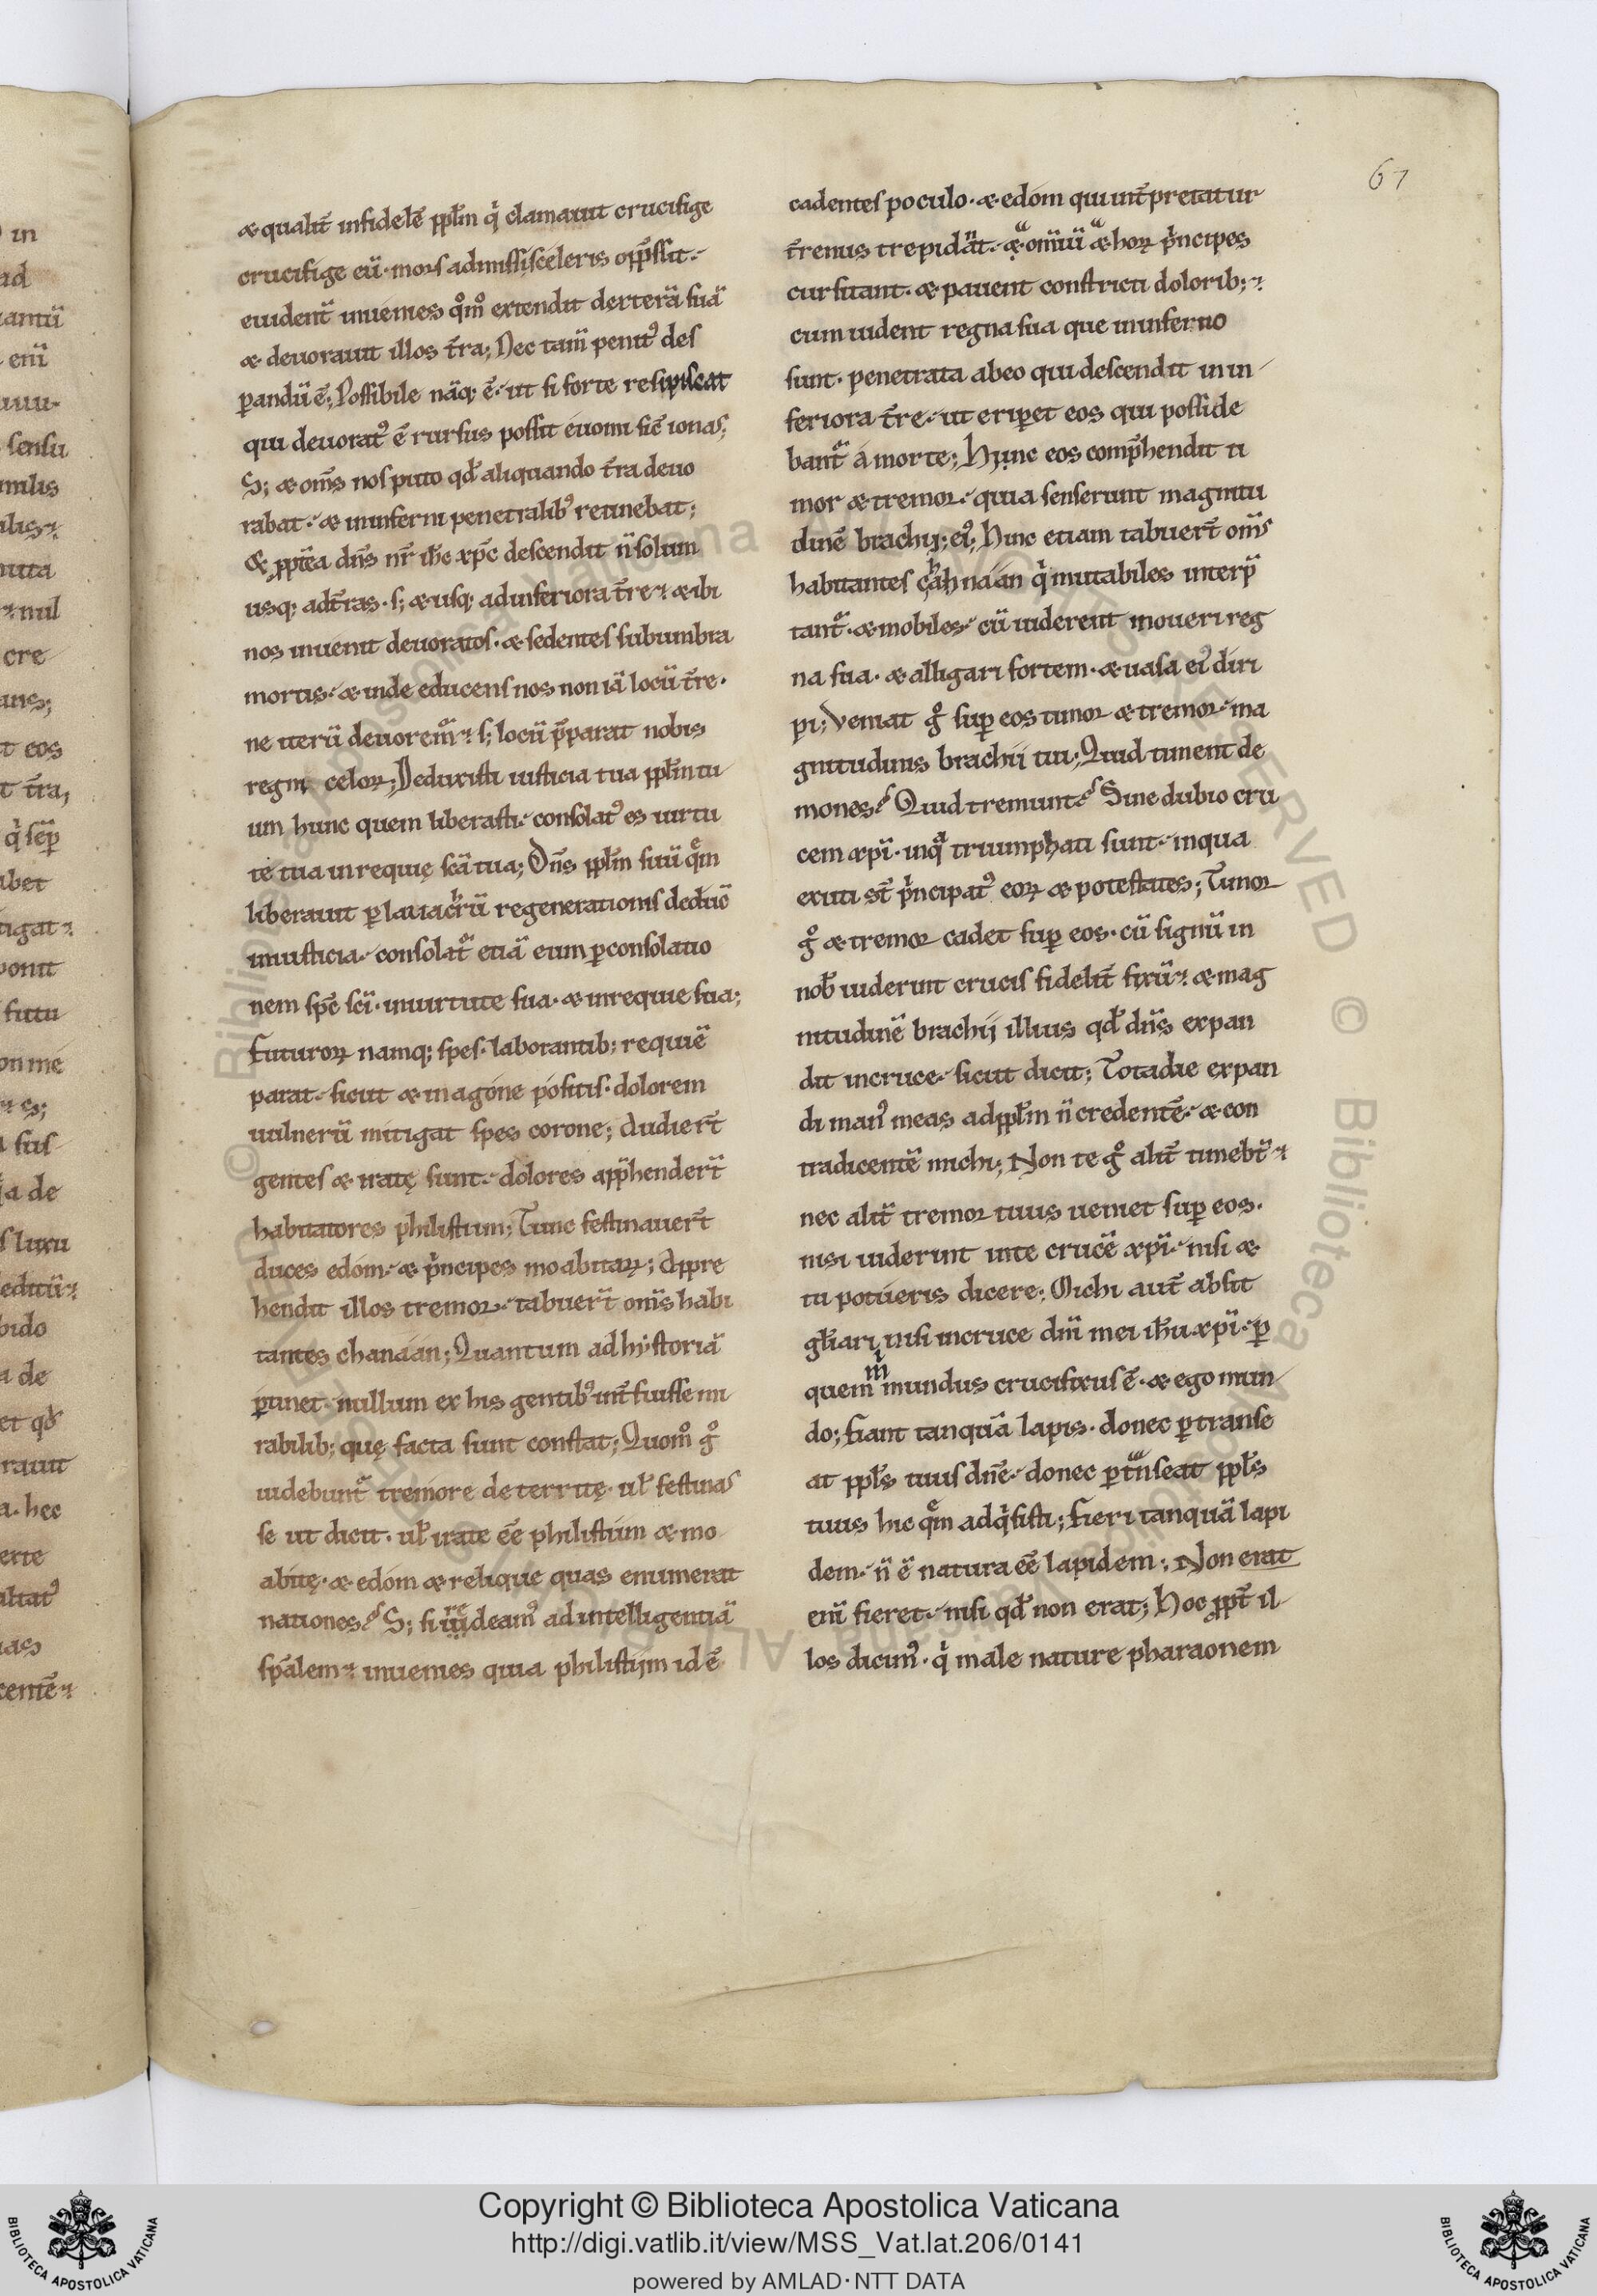 67
& qualit̄ infidelē ppl̄m q' clamauit crucifige
crucifige eū· mors admissi sceleris opp̄ssit·
euident̄ inuenies qͦmͦ extendit dexterā suā
& deuorauit illos t̄ra; Nec tam̄ penit' des
pandū ē; Possibile nāq; ē· ut si forte resipiscat
qui deuorat' ē rursus possit euomi sic̄ ionas;
S; & om̄s nos puto qd̄ aliquando t̄ra deuo
rabat· & in inferni penetralib' retinebat;
& ppt̄ea dn̄s nr̄ ih̄c xp̄c descendit n̄ solum
usq; ad t̄ras· s; & usq; ad inferiora t̄re· & ibi
nos inuenit deuoratos· & sedentes sub umbra
mortis· & inde educens nos non iā locū t̄re·
ne iterū deuorem᷑· s; locū p̄parat nobis
regni celoꝝ; Deduxisti iusticia tua ppl̄m tu
um hunc quem liberasti· consolat' es uirtu
te tua in requie sc̄a tua; Dn̄s ppl̄m suū qͤm
liberauit p lauacrū regenerationis deduc̄
in iusticia· consolat᷑ etiā eum p consolatio
nem sp̄c sc̄i· in uirtute sua· & in requie sua;
Futuroꝝ namq; spes· laborantib; requiē
parat· sicut & in agone positis· dolorem
uulnerū mitigat spes corone; Audier̄t
gentes & iratę sunt· dolores app̄hender̄t
habitatores philistium; Tunc festinauer̄t
duces edom· & p'ncipes moabitaꝝ; Appre
hendit illos tremor· tabuer̄t om̄s habi
tantes chanaan; Quantum ad hystoriā
ptinet· nullum ex his gentib' int̄fuisse mi
rabilib; quę facta sunt constat; Quomͦ gͦ
uidebunt᷑ tremore deterritę· ul̄ festinas
se ut dicit· ul̄ irate eē philistiim & mo
abitę· & edom & relique quas enumerat
nationes? S; si redeam' ad intelligentiā
sp̄alem· inuenies quia philistijm id ē
cadentes poculo· & edom qui int̄pretatur
t̄renus trepidāt· & om̄iū & hoꝝ p'ncipes
cursitant· & pauent constricti dolorib;·
cum uident regna sua que in inferno
sunt· penetrata ab eo qui descendit in in
feriora t̄re· ut eripet eos qui posside
bant᷑ a morte; Hunc eos comp̄hendit ti
mor & tremor· quia senserunt magnitu
dinē brachij; ei'; Hinc etiam tabuer̄t om̄s
habitantes chahnaan q' mutabiles interp̄
tant᷑· & mobiles· cū uiderent moueri reg
na sua· & alligari fortem· & uasa ei' diri
pi; Veniat gͦ sup eos timor & tremor· ma
gnitudinis brachii tui; Quid timent de
mones? Quid tremunt? Sine dubio cru
cem xp̄i· in qͣ triumphati sunt· in qua
exuti st̄ p'ncipat' eoꝝ & potestates; Timor
gͦ & tremor cadet sup eos· cū signū in
nob̄ uiderint crucis fidelit̄ fixū· & mag
nitudinē brachij illius qd̄ dn̄s expan
dit in cruce· sicut dicit; Tota die expan
di man' meas ad ppl̄m n̄ credentē· & con
tradicentē michi; Non te gͦ alit̄ timebt̄·
nec alit̄ tremor tuus ueniet sup eos·
nisi uiderint in te crucē xp̄i· nisi &
tu potueris dicere; Michi aut̄ absit
gl̄iari nisi in cruce dn̄i mei ih̄u xp̄i· p
quem m' mundus crucifixus ē· & ego mun
do; Fiant tanquā lapis· donec ptranse
at ppl̄s tuus dn̄e· donec ptͣnseat ppl̄s
tuus hic qͤm adq'sisti; Fieri tanquā lapi
dem· n̄ ē natura eē lapidem; Non erat
eni fieret· nisi qd̄ non erat; Hoc ppt̄ il
los dicim'· q' male nature pharaonem
in
ad
antū
enī
sensu
cre
eos
t̄ra,
q' sep̄
bet
futu
de
luxu
bido
de
et qd̄
hec
Copyright © Biblioteca Apostolica Vaticana
http://digi.vatlib.it/view/MSS_Vat.lat.206/0141
powered by AMLAD·NTT DATA
BIBLIOTECA APOSTOLICA VATICANA
BIBLIOTECA APOSTOLICA VATICANA